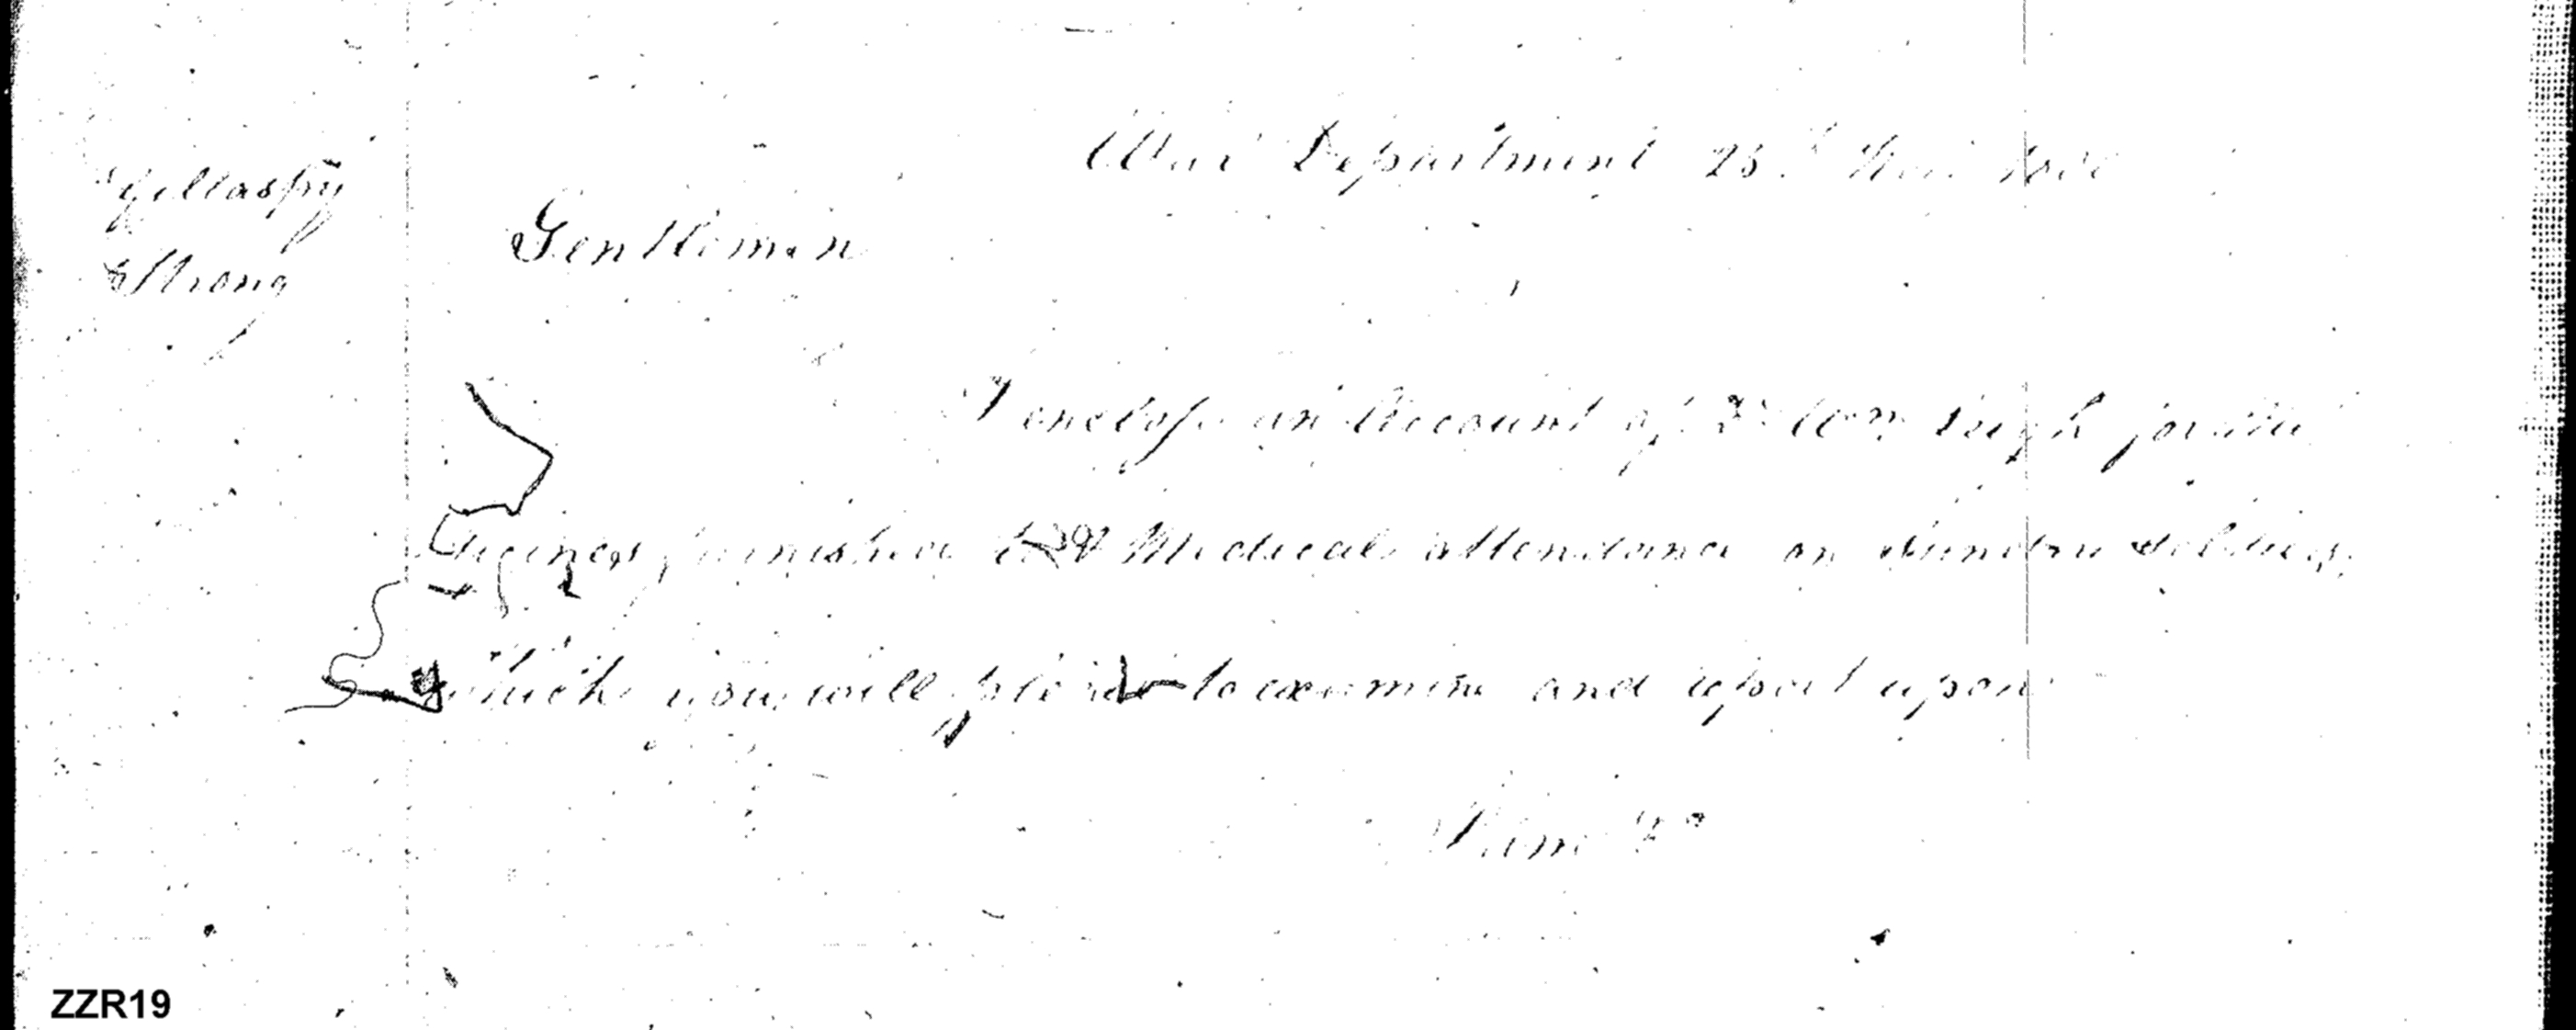 Gillaspy
& Strong
War Department 25.th Nov. 1800
Gentlemen
I enclose an Account of Dr. Wm. Pugh for Me
dicines furnished & Medical attendance on Sundry Soldiers,
which you will please to examine and report upon
ZZR19